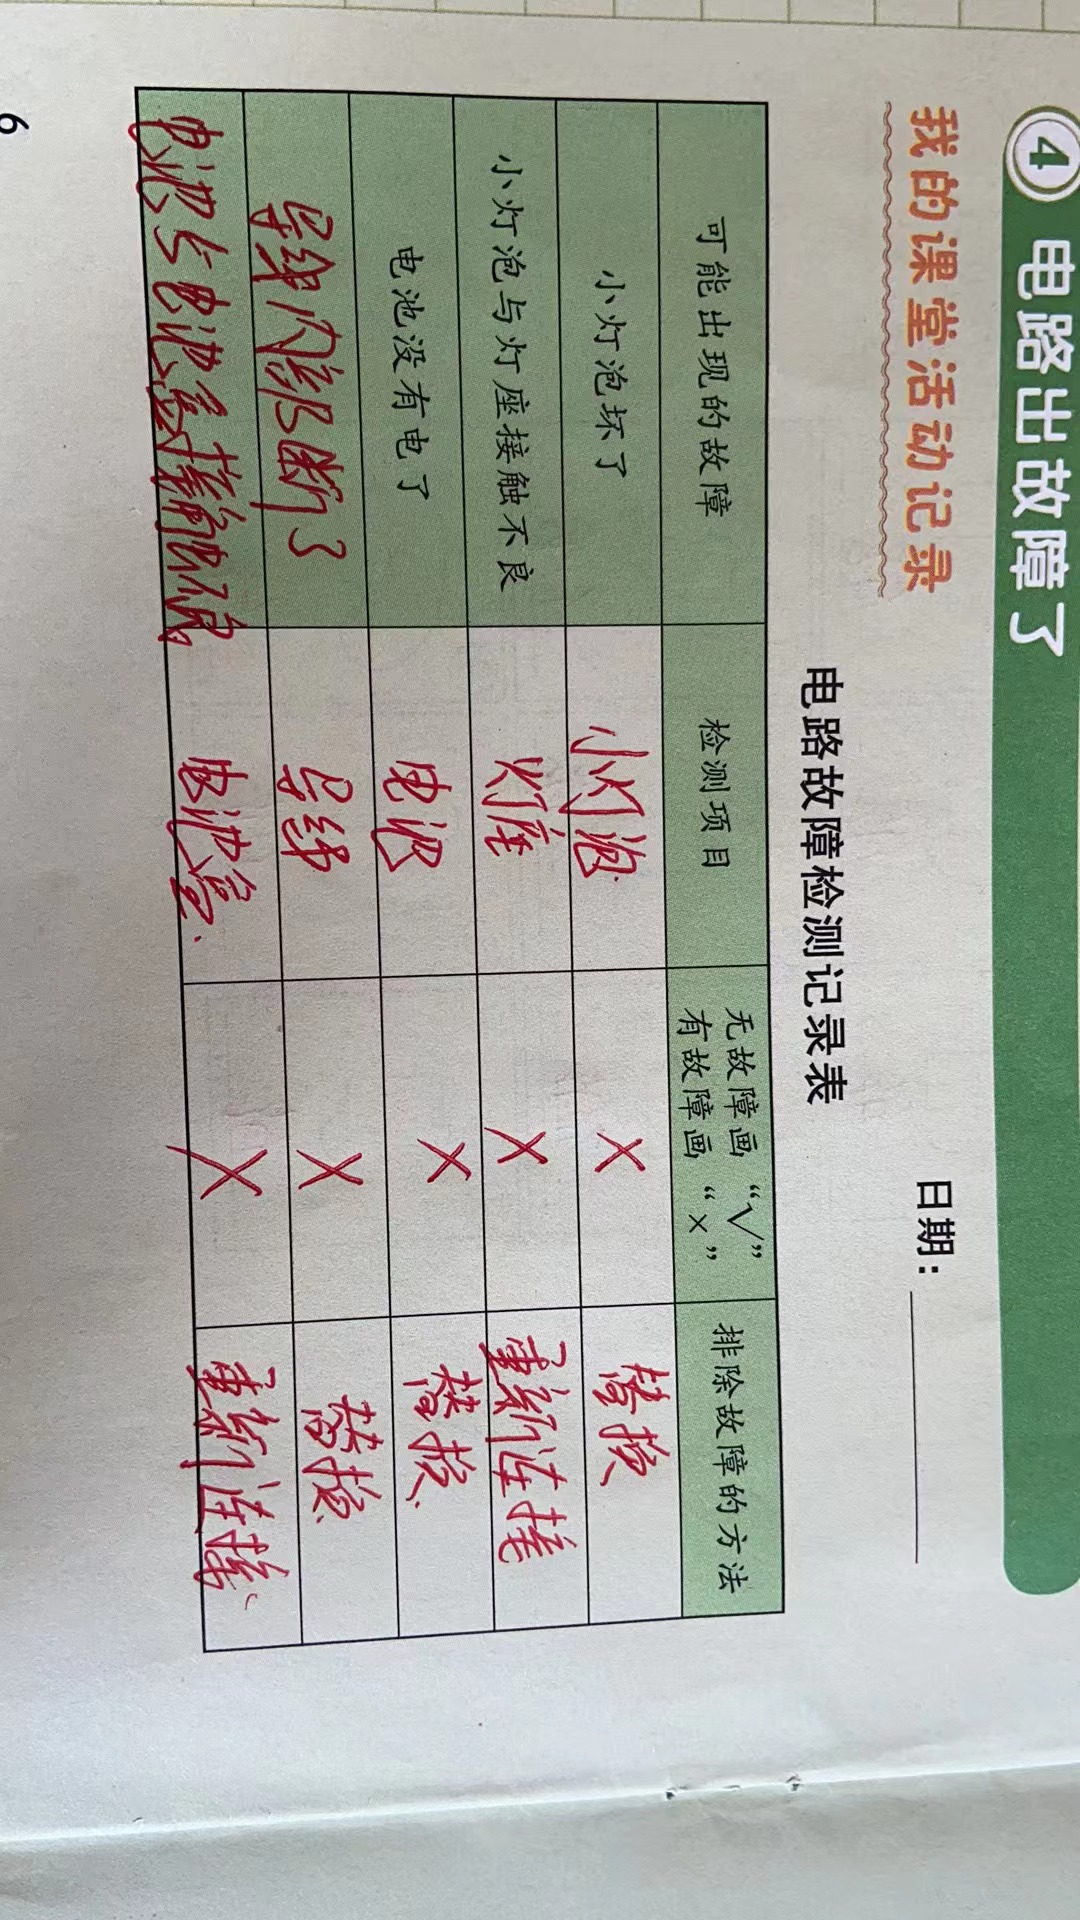 ④ 电路出故障了
我的课堂活动记录
日期：
电路故障检测记录表
可能出现的故障 检测项目 无故障画“√” 有故障画“×” 排除故障的方法
小灯泡坏了 小灯泡 × 替换
小灯泡与灯座接触不良 灯座 × 重新连接
电池没有电了 电池 × 替换
导线内部断了 导线 × 替换
电池与电池盒接触不良 电池盒 × 重新连接
6